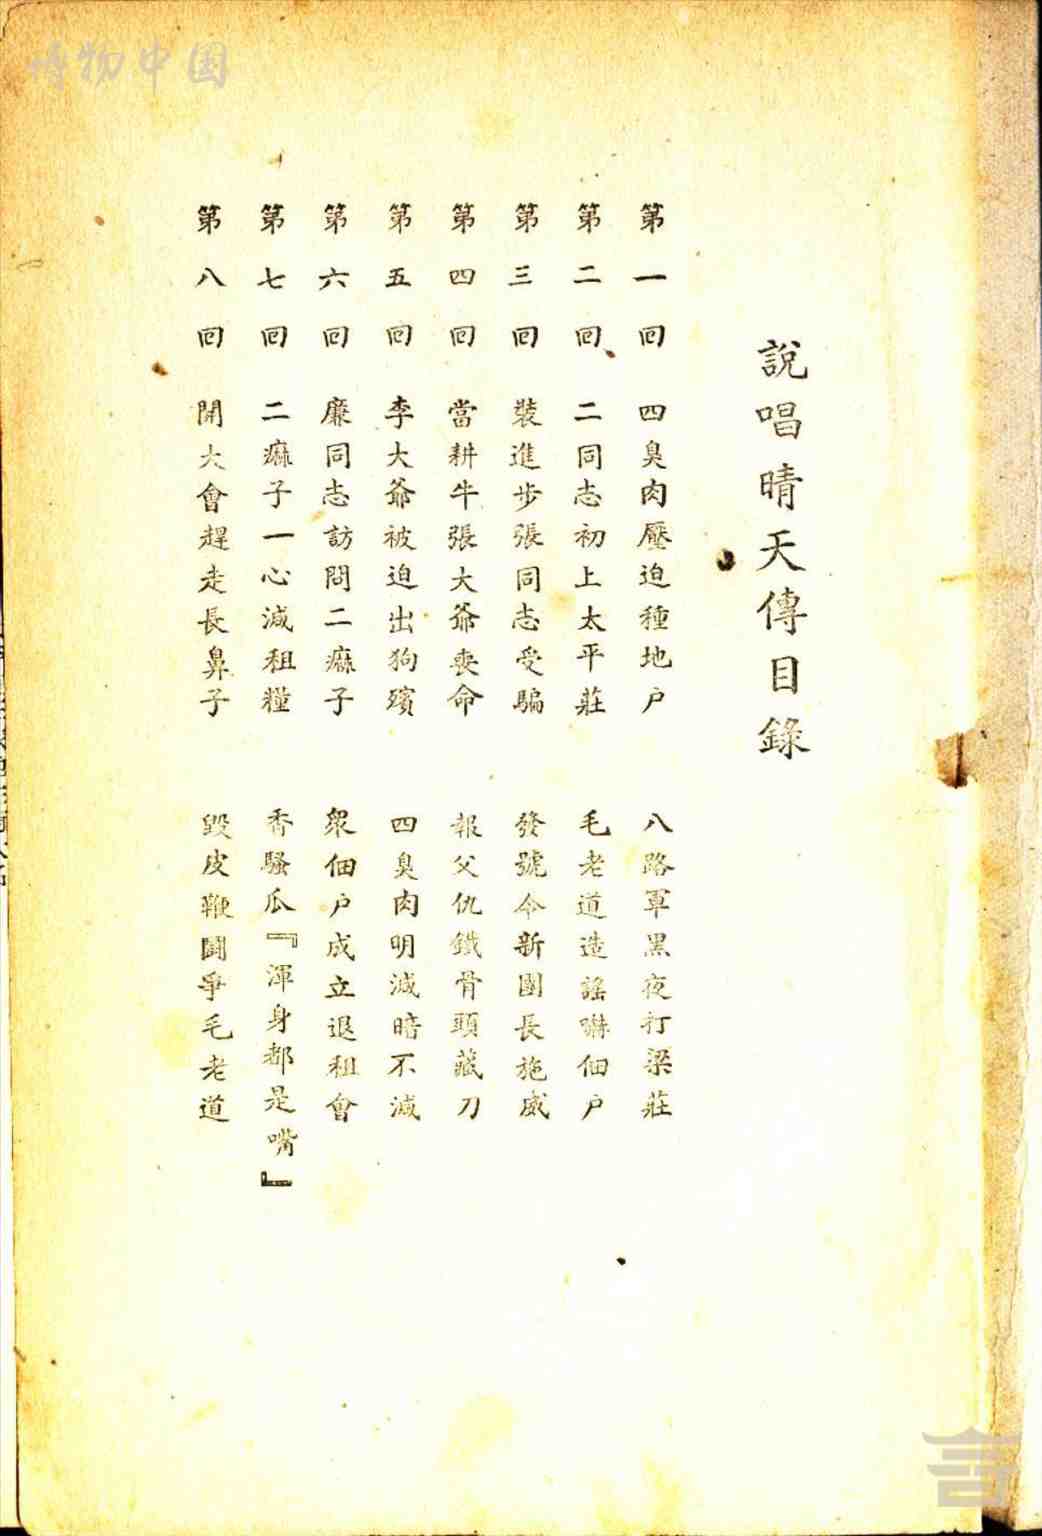 博物中国
說唱晴天傳目錄
第一回 四臭肉壓迫種地户 八路軍黑夜打梁莊
第二回 二同志初上太平莊 毛老道造謠嚇佃户
第三回 裝進步張同志受騙 發號令新團長施威
第四回 當耕牛張大爺喪命 報父仇鐵骨頭藏刀
第五回 李大爺被迫出狗殯 四臭肉明減暗不減
第六回 廉同志訪問二癩子 衆佃户成立退租會
第七回 二癩子一心減租糧 香騷瓜『渾身都是嘴』
第八回 開大會趕走長鼻子 毀皮鞭鬪爭毛老道